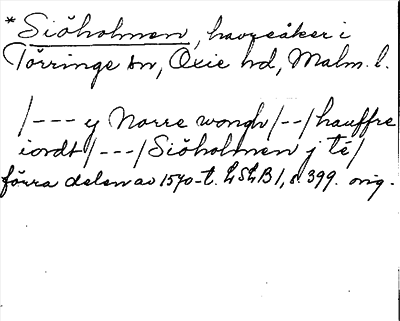 *Siöholmen, havreåker i
Törringe sn, Oxie hd, Malm. l.
/--- y Norre wongh/--/hauffre
iordt/---/Siöholmen j té/
förra delen av 1570-t. LSLB 1, s. 399. orig.